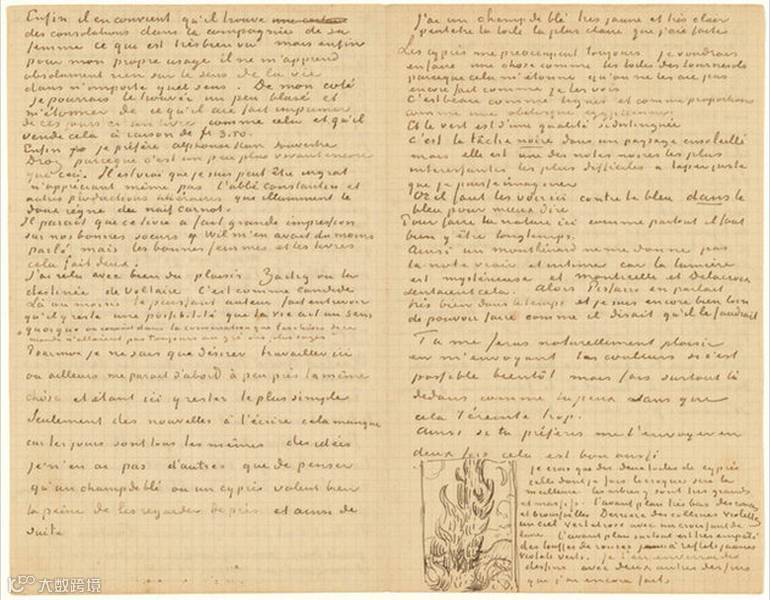 Enfin il en convient qu'il trouve
des consolations dans la compagnie de sa
femme ce qui est très bien vu mais enfin
pour mon propre usage il ne m'apprend
absolument rien sur le sens de la vie
dans n'importe quel sens. De mon coté
je pourrais le trouver un peu blasé et
m'étonner de ce qu'il aie fait imprimer
de ces jours ci un livre comme cela et qu'il
vende cela à raison de fr 3.50.
Enfin je préfère alphonse Karr Souvestre
Droz parceque c'est un peu plus vivant encore
que ceci. Il est vrai que je suis peut être ingrat
n'appréciant même pas l'abbé Constantin et
autres productions littéraires qui illuminent le
doux règne du naïf Carnot.
Il parait que ce livre a fait grande impression
sur nos bonnes soeurs. Wil m'en avait du moins
parlé mais les bonnes femmes et les livres
cela fait deux.
J'ai relu avec bien du plaisir Zadig ou la
destinée de Voltaire. C'est comme Candide
Là au moins le puissant auteur fait entrevoir
qu'il y reste une possibilité que la vie ait un sens
quoique on convint dans la conversation que les choses de ce
monde n'allaient pas toujours au gré des plus sages.
Pour moi je ne sais que désirer travailler ici
ou ailleurs me parait d'abord à peu près la même
chose et étant ici y rester le plus simple
Seulement des nouvelles à t'écrire cela manque
car les jours sont tous les mêmes des idées
je n'en ai pas d'autres que de penser
qu'un champ de blé ou un cyprès valent bien
la peine de les regarder de près et ainsi de
suite
J'ai un champ de blé très jaune et très clair
peutetre la toile la plus claire que j'aie faite
Les cyprès me préoccupent toujours je voudrais
en faire une chose comme les toiles des tournesols
parceque cela m'étonne qu'on ne les ait pas
encore fait comme je les vois
C'est beau comme lignes et comme proportions
comme une obélisque egyptienne.
Et le vert est d'une qualité si distinguée
C'est la tâche noire dans un paysage ensoleillé
mais elle est une des notes noires les plus
interessantes les plus difficiles à taper juste
que je puisse imaginer
Or il faut les voir ici contre le bleu dans le
bleu pour mieux dire
Pour faire la nature ici comme partout il faut
bien y être longtemps.
Ainsi un monthénard ne me donne pas
la note vraie et intime car la lumière
est mystérieuse et monticelli et Delacroix
sentaient cela. Alors Pissarro en parlait
très bien dans le temps et je suis encore bien loin
de pouvoir faire comme il disait qu'il le faudrait
Tu me feras naturellement plaisir
en m'envoyant les couleurs si c'est
possible bientôt mais fais surtout là
dedans comme tu peux sans que
cela t'éreinte trop.
Ainsi si tu préfères me l'envoyer en
deux fois cela est bon aussi
je crois que des deux toiles de cyprès
celle dont je fais le croquis sera la
meilleure les arbres y sont très grands
et massifs. l'avant plan très bas des ronces
et broussailles Derrière des collines violettes
un ciel vert et rose avec un croissant de
lune. l'avant plan surtout est très empâté
des touffes de ronces à reflets jaunes
violets verts. je t'en enverrai des
dessins avec deux autres dessins
que j'ai encore faits.
大数跨境